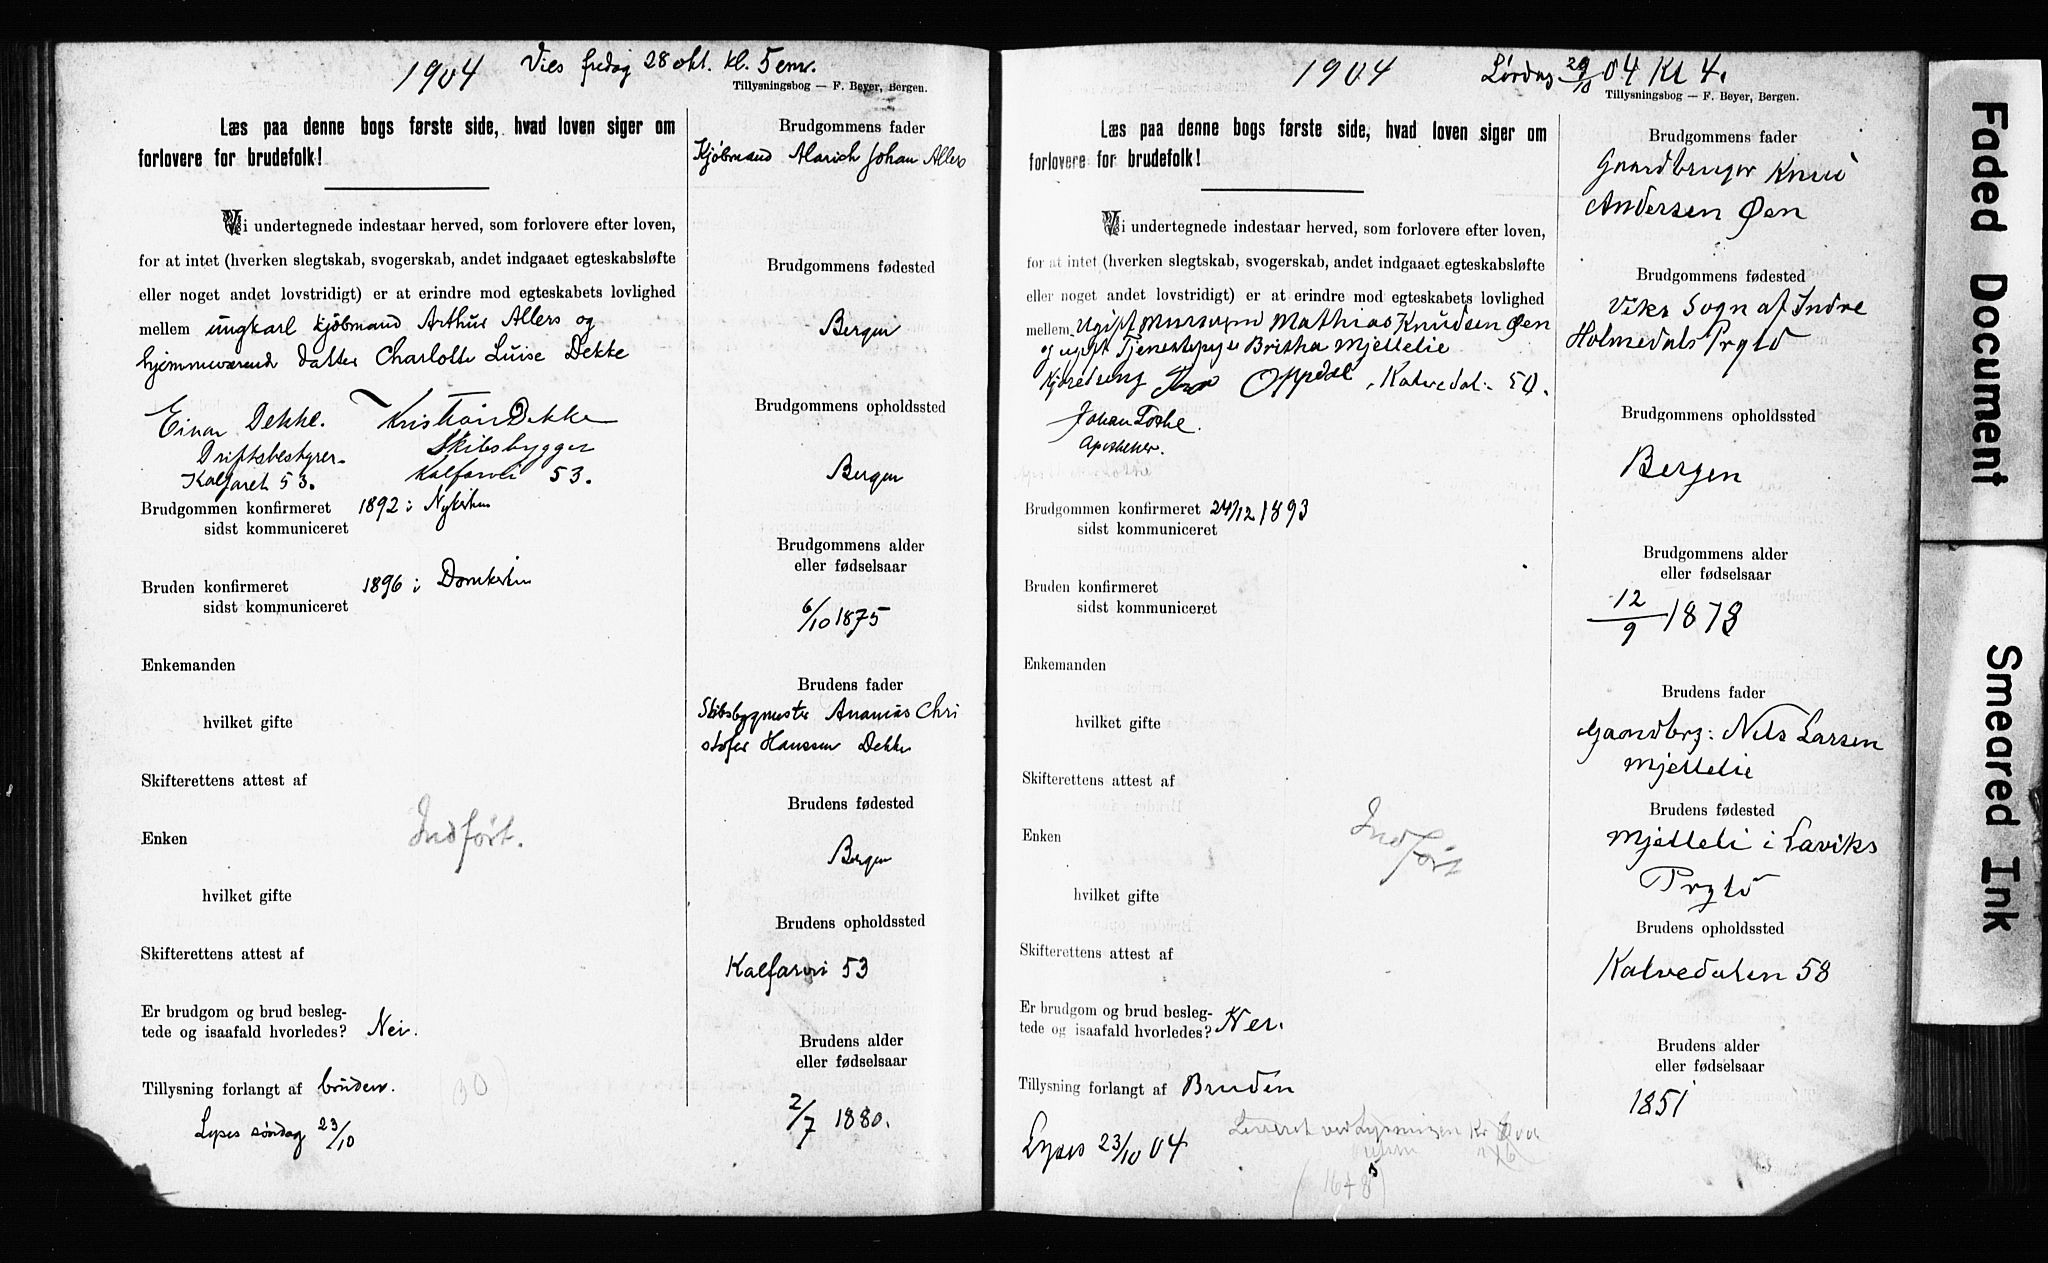 1904 Vies fredag 28 okt. kl. 5 em.
Tillysningsbog — F. Beyer, Bergen.
Læs paa denne bogs første side, hvad loven siger om
forlovere for brudefolk!
Vi undertegnede indestaar herved, som forlovere efter loven,
for at intet (hverken slegtskab, svogerskab, andet indgaaet egteskabsløfte
eller noget andet lovstridigt) er at erindre mod egteskabets lovlighed
mellem ungkarl kjøbmand Arthur Allers og
hjemmeværend datter Charlotte Luise Dekke
Einar Dekke. Kristian Dekke
Driftsbestyrer. Skibsbygger
Kalfaret 53. Kalfarvei 53.
Brudgommen konfirmeret 1892 i Nykirken
sidst kommuniceret
Bruden konfirmeret 1896 i Domkirken
sidst kommuniceret
Enkemanden
hvilket gifte
Skifterettens attest af
Indført.
Enken
hvilket gifte
Skifterettens attest af
Er brudgom og brud besleg-
tede og isaafald hvorledes? Nei.
Tillysning forlangt af bruden.
Lyses søndag 23/10
Brudgommens fader
Kjøbmand Alarich Johan Allers
Brudgommens fødested
Bergen
Brudgommens opholdssted
Bergen
Brudgommens alder
eller fødselsaar
6/10 1875
Brudens fader
Skibsbygmester Ananias Chri
stofer Hanssen Dekke
Brudens fødested
Bergen
Brudens opholdssted
Kalfarvei 53
Brudens alder
eller fødselsaar
2/7 1880.
1904 Lørdag 29/10 04 Kl 4.
Tillysningsbog — F. Beyer, Bergen.
Læs paa denne bogs første side, hvad loven siger om
forlovere for brudefolk!
Vi undertegnede indestaar herved, som forlovere efter loven,
for at intet (hverken slegtskab, svogerskab, andet indgaaet egteskabsløfte
eller noget andet lovstridigt) er at erindre mod egteskabets lovlighed
mellem Ugift Mursvend Mathias Knudsen Øen
og ugift Tjenestepige Britha Mjellelie
Oppedal, Kalvedal. 50.
Johan Lothe.
Apotheker.
Brudgommen konfirmeret 24/12 1893
sidst kommuniceret
Bruden konfirmeret
sidst kommuniceret
Enkemanden
hvilket gifte
Skifterettens attest af
Indført
Enken
hvilket gifte
Skifterettens attest af
Er brudgom og brud besleg-
tede og isaafald hvorledes? Nei.
Tillysning forlangt af Bruden
Lyses 23/10 04
Brudgommens fader
Gaardbruger Knud
Andersen Øen
Brudgommens fødested
Viks Sogn af Indre
Holmedals Prgld
Brudgommens opholdssted
Bergen
Brudgommens alder
eller fødselsaar
12/9 1878
Brudens fader
Gaardbrg: Nils Larsen
Mjellelie
Brudens fødested
Mjelleli i Laviks
Prgld
Brudens opholdssted
Kalvedalen 58
Brudens alder
eller fødselsaar
1851
Faded Document
Smeared Ink